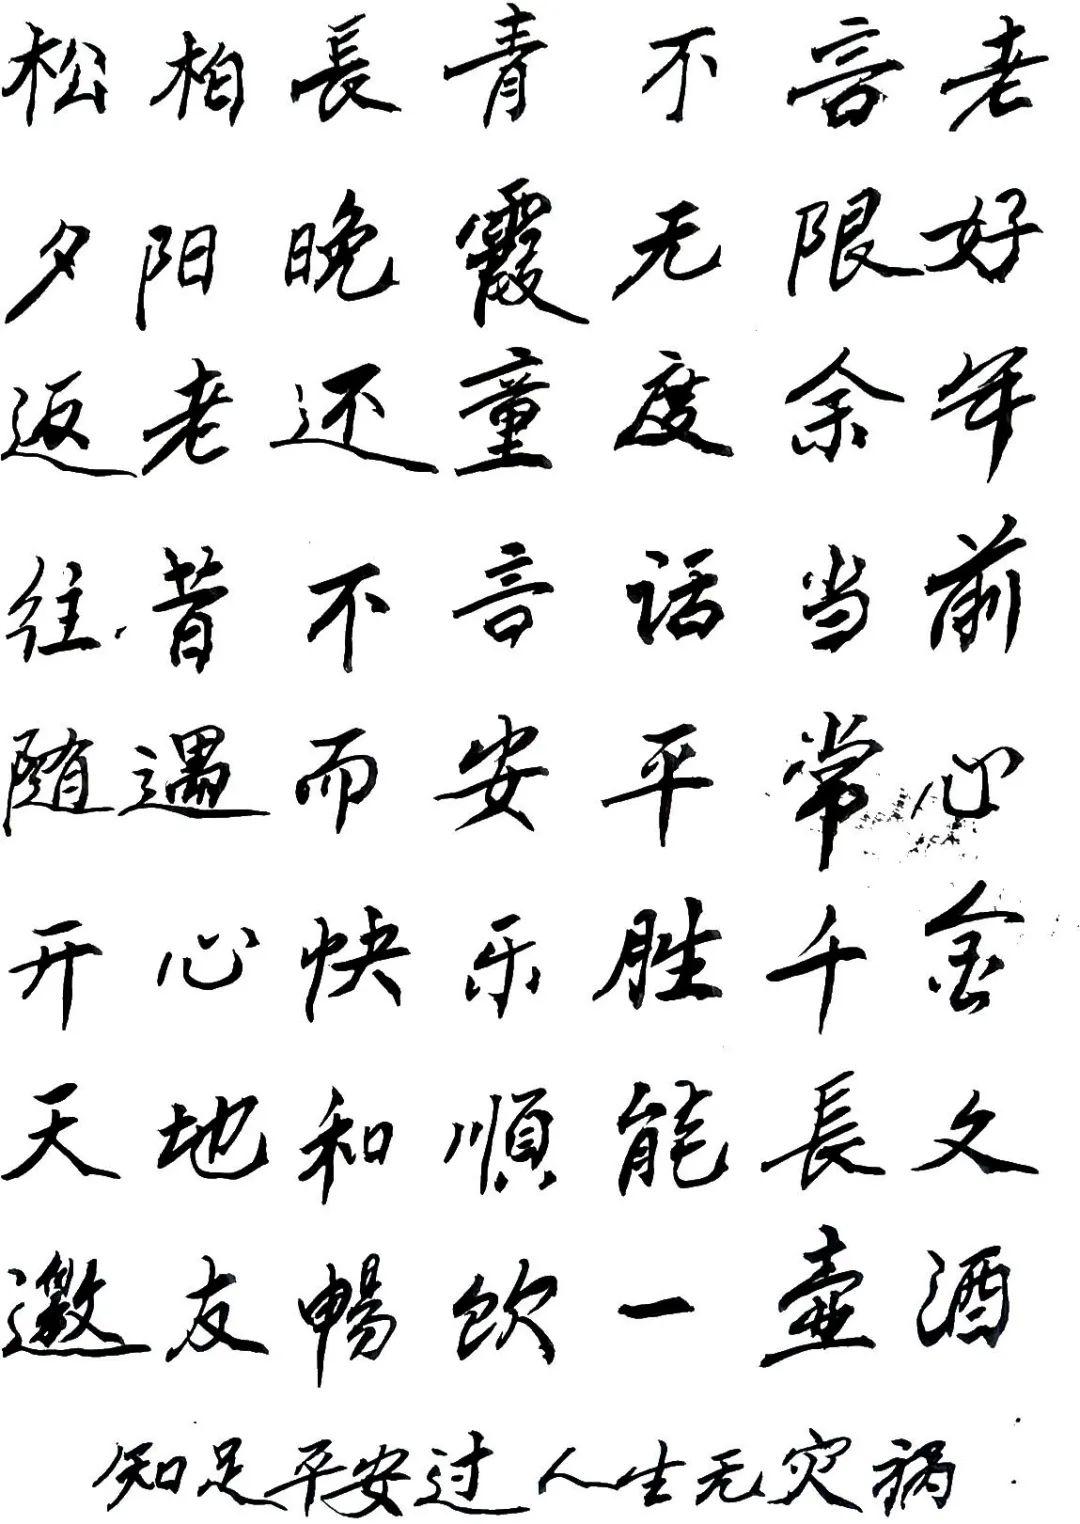 松柏長青不言老
夕阳晚霞无限好
返老还童度余年
往昔不言话当前
随遇而安平常心
开心快乐胜千金
天地和順能長久
邀友暢饮一壶酒
知足平安过人生无灾祸